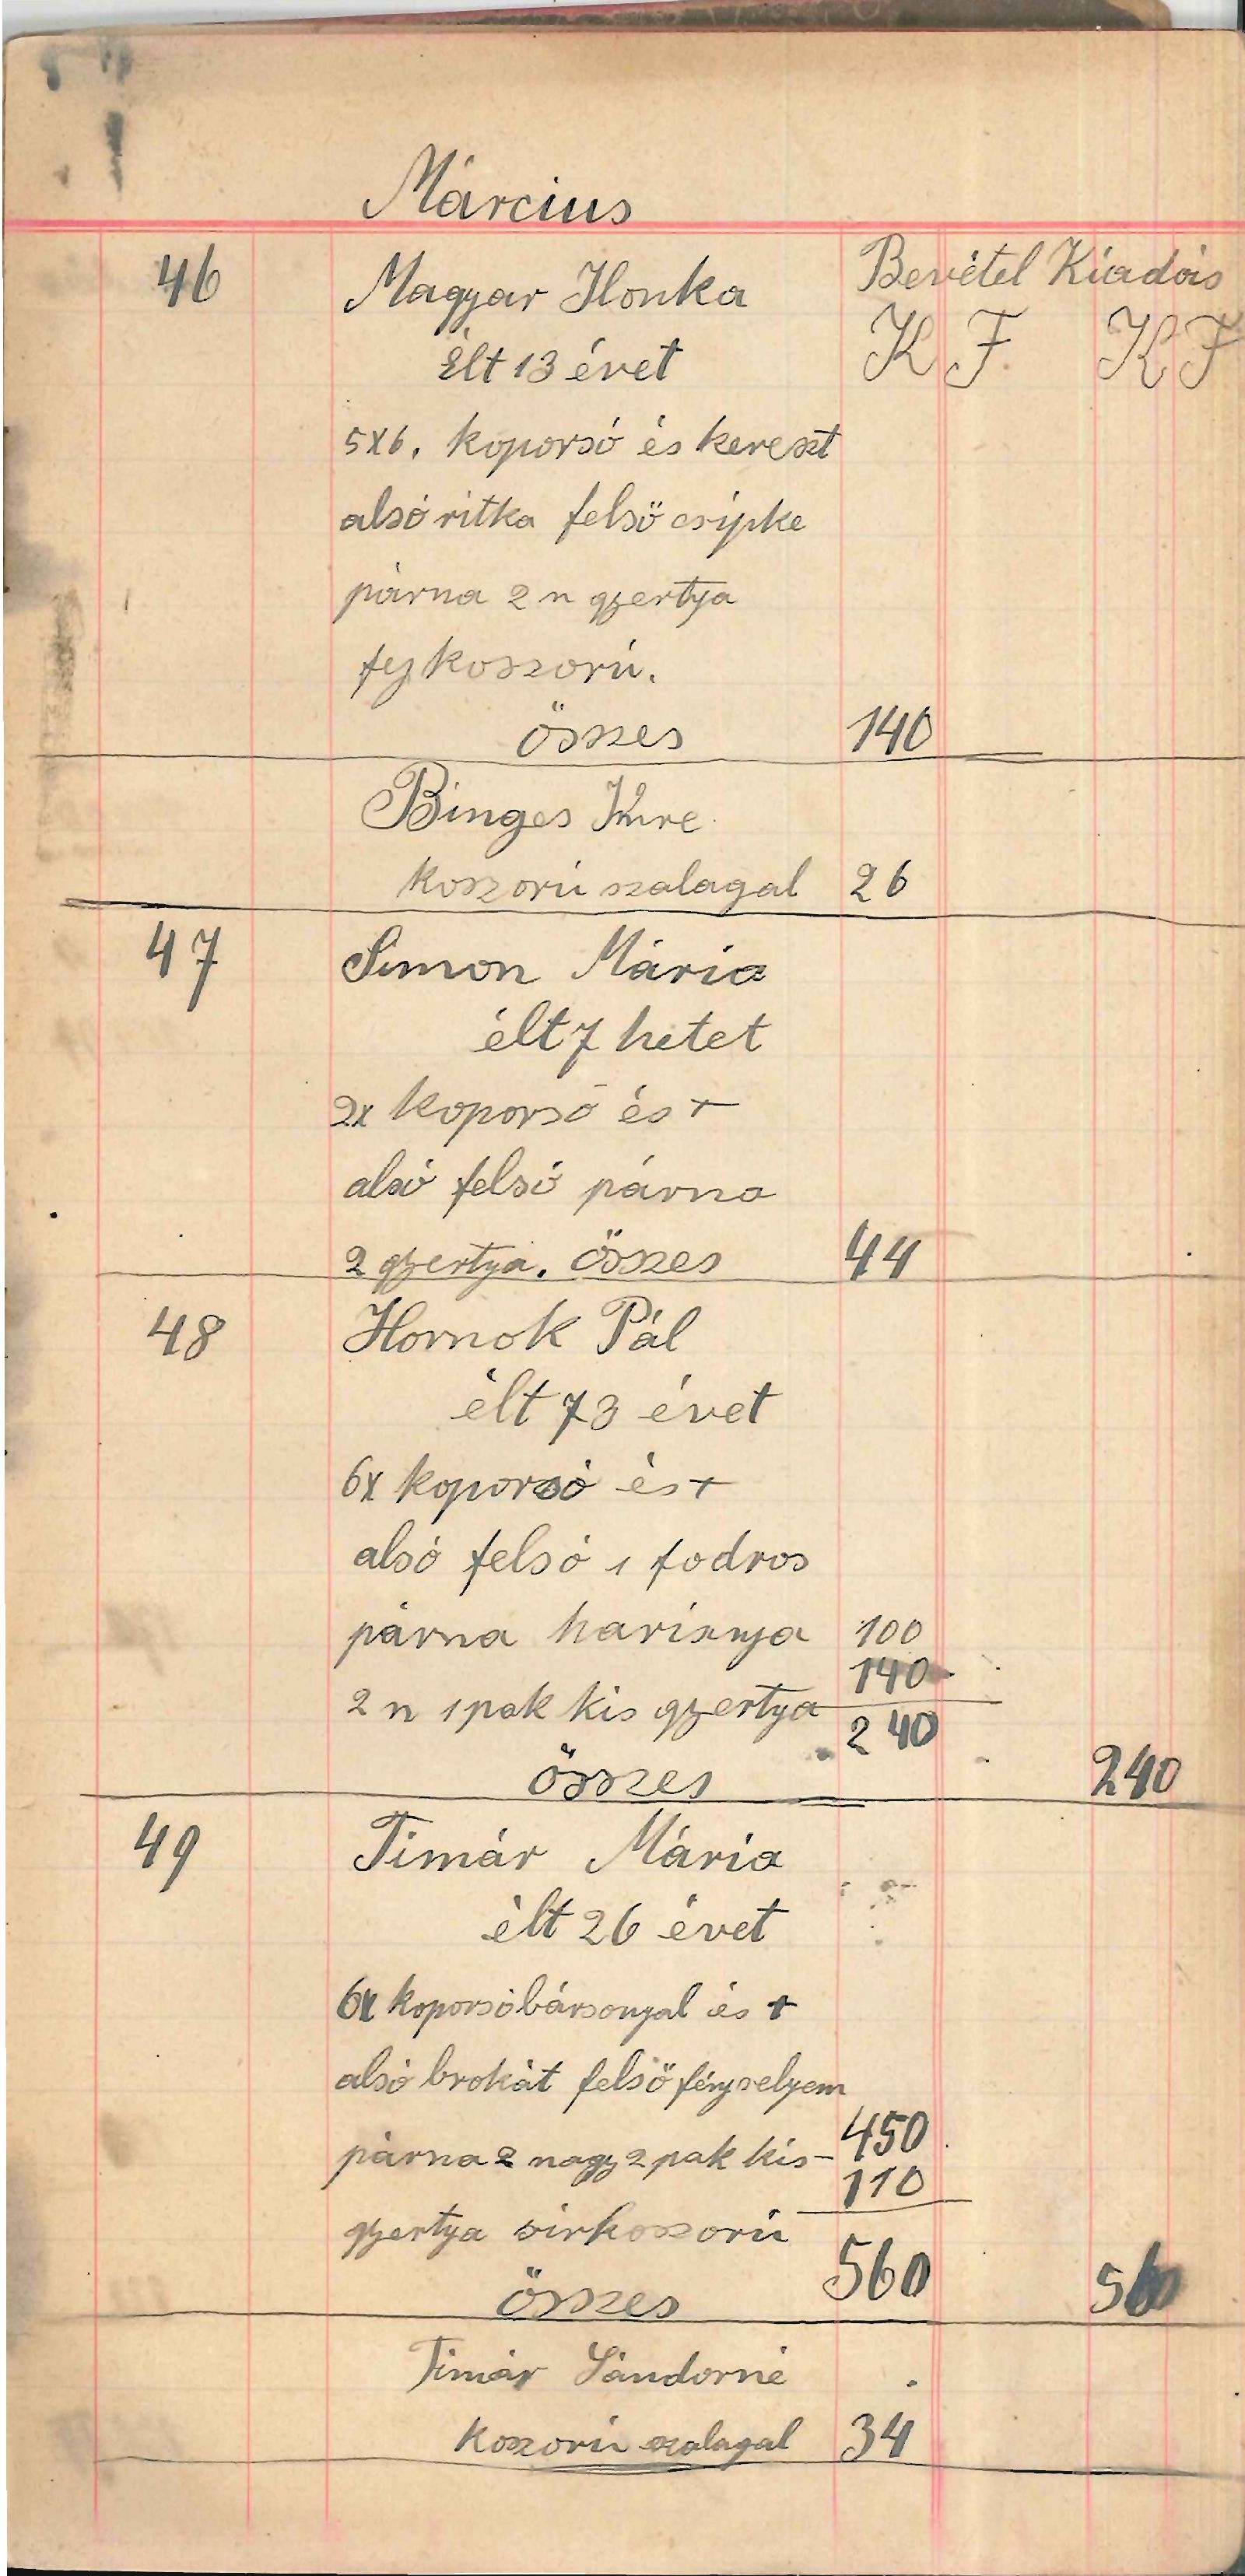 Március
46 Magyar Ilonka Bevétel Kiadás
Élt 13 évet K F K F
5x6. koporsó és kereszt
alsó ritka felsö csipke
párna 2 n gyertya
fejkoszorú.
összes 140
Binges Imre
koszorú szalagal 26
47 Simon Mária
élt 7 hetet
2x koporsó és +
alsó felsó párna
2 gyertya. összes 44
48 Hornok Pál
élt 73 évet
6x koporsó és +
alsó felsó 1 fodros
párna harisnya 100
140
2 n 1 pak kis gyertya
240
összes 240
49 Timár Mária
élt 26 évet
6x koporsó bársonyal és +
alsó brokát felsö fényselyem
450
párna 2 nagy 2 pak kis-
110
gyertya sirkoszorú
560 560
összes
Timár Sándorné
koszorú szalagal 34